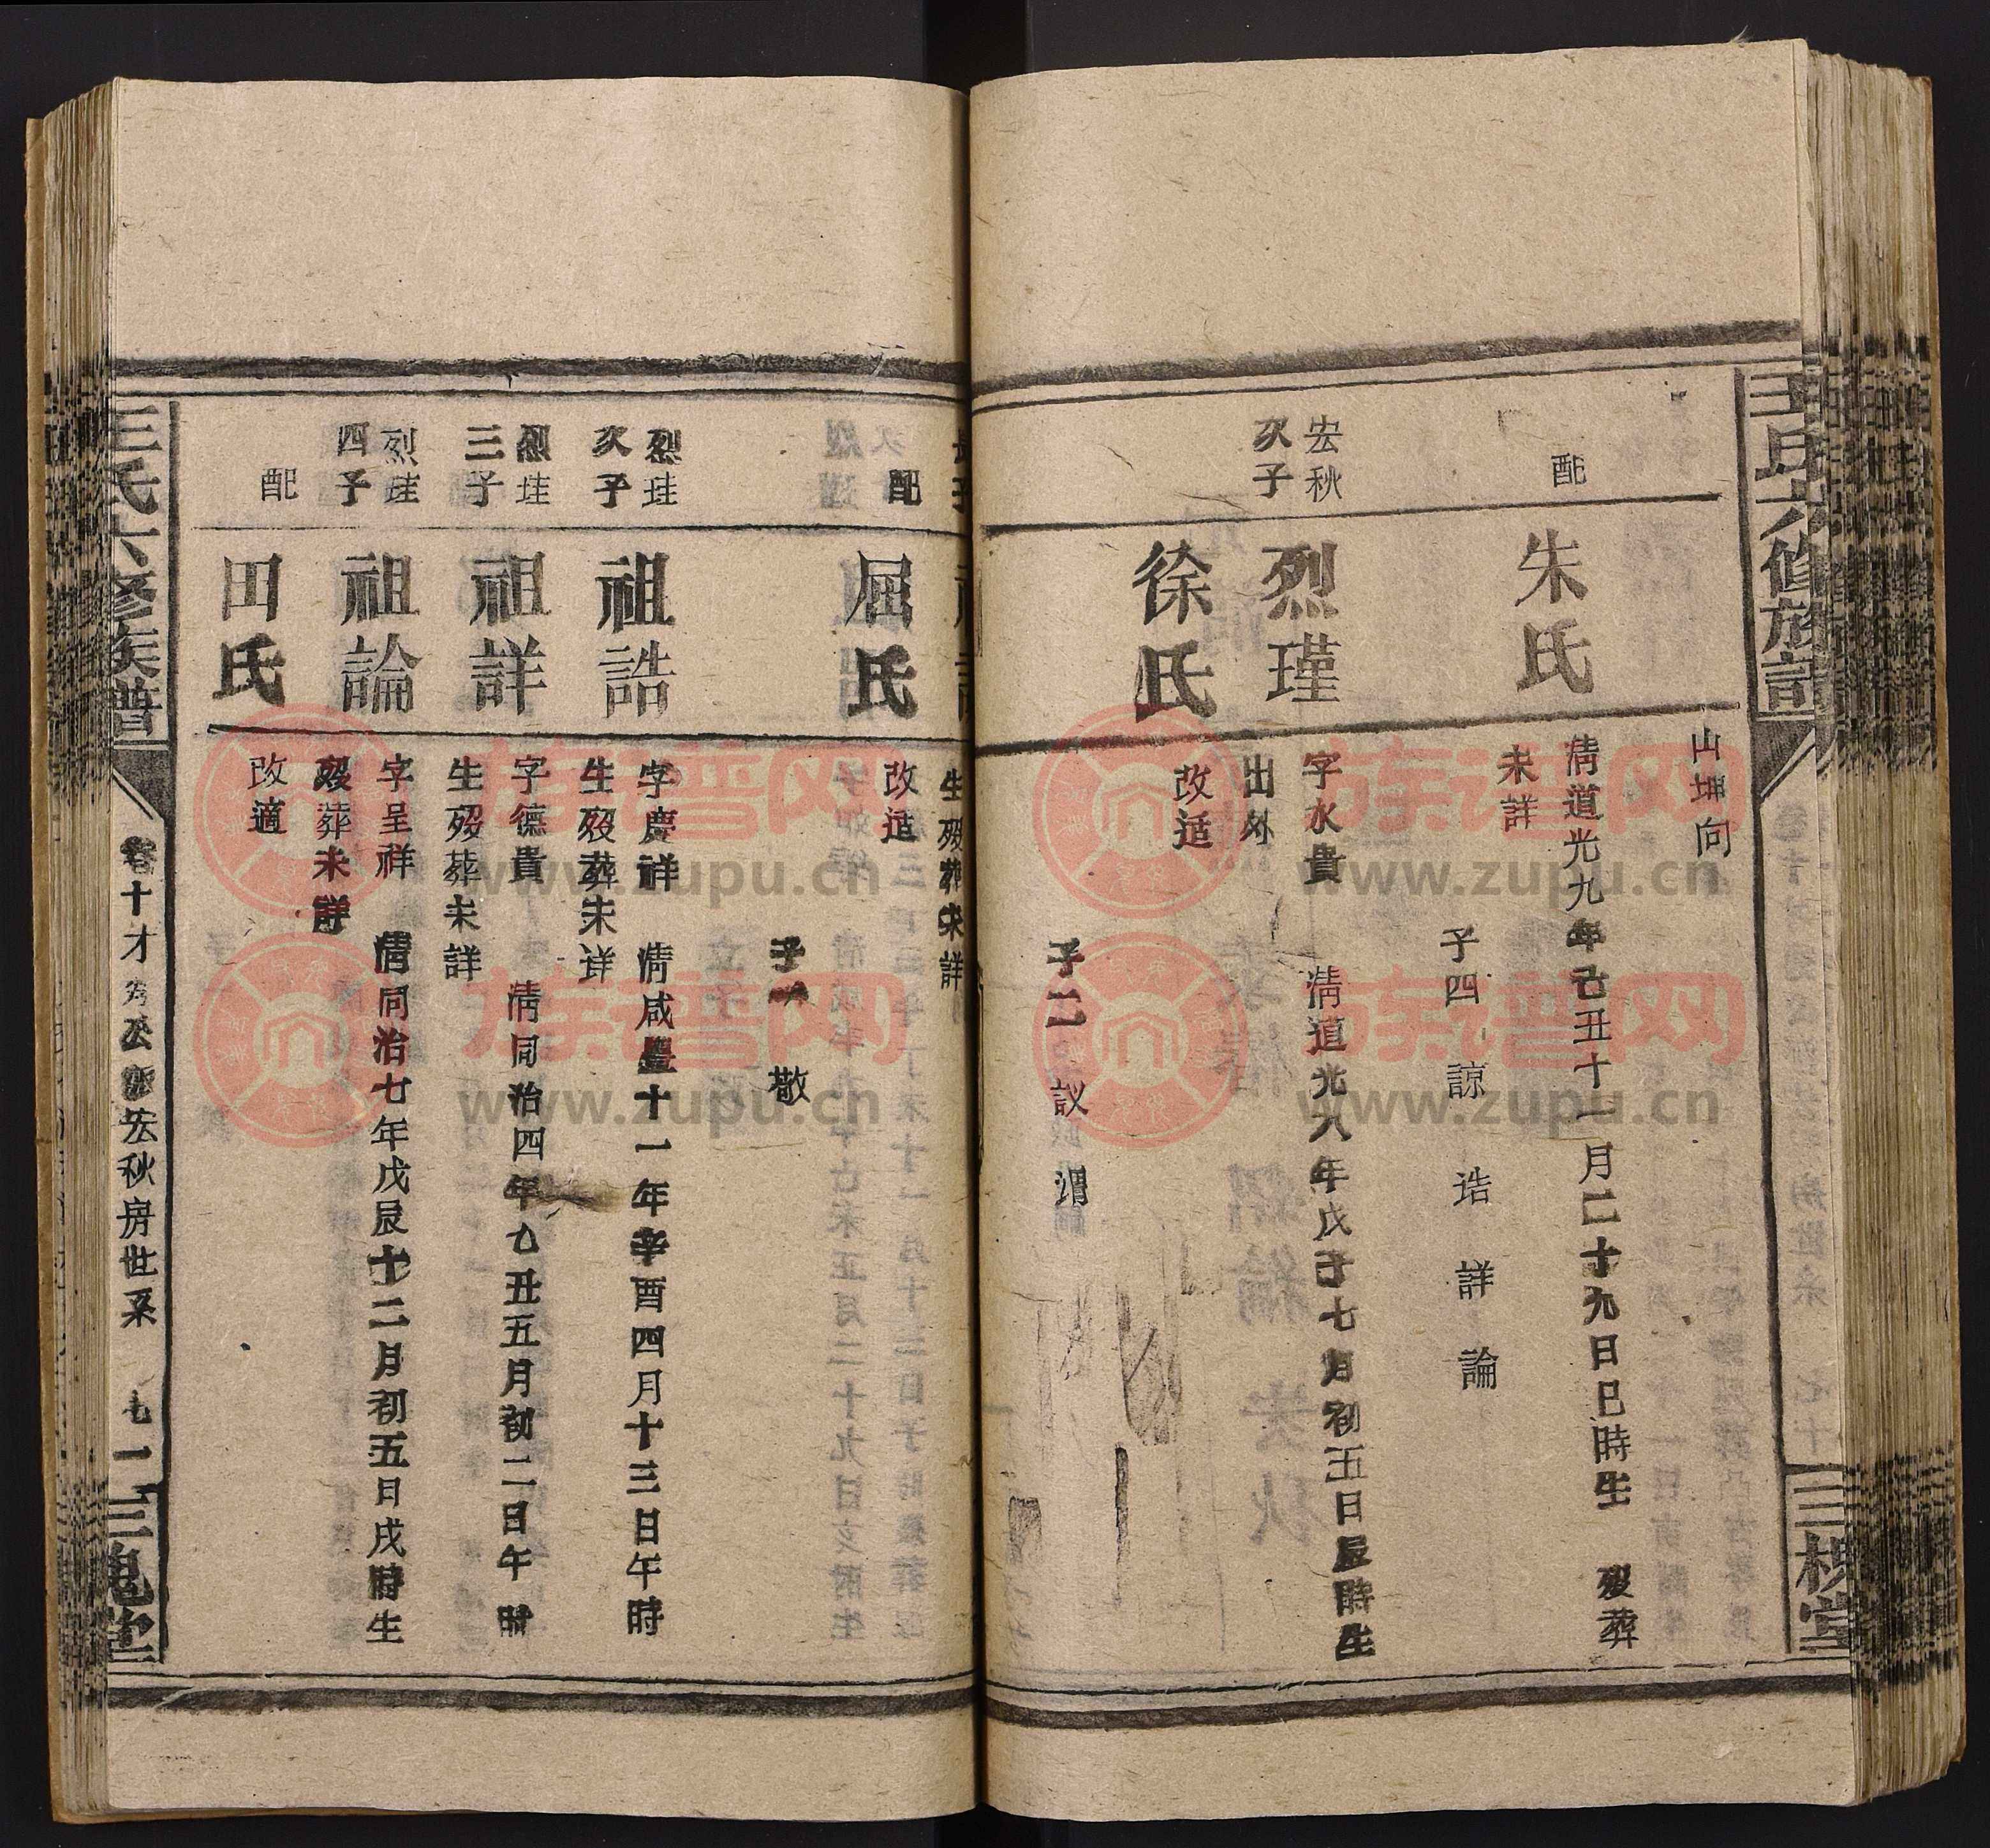 王氏六修族譜
三槐堂
山 向
配
朱氏
清道光九年己丑十一月二十九日巳時生 歿葬
未詳
子四 諒 诰 詳 論
宏秋
次子
烈瑾
字水貴 清道光八年戊子七月初五日辰時生
出外
徐氏
改适
子二 議 渭
生歿葬未詳
配
屈氏
改适
子一 敬
烈珪
次子
祖誥
字慶祥 清咸豐十一年辛酉四月十三日午時
生歿葬未详
烈珪
三子
祖詳
字德貴 清同治四年乙丑五月初二日午時
生歿葬未詳
烈珪
四子
祖論
字呈祥 清同治七年戊辰十二月初五日戌時生
歿葬未詳
配
田氏
改適
王氏六修族普
卷十才 公 宏秋房世系 七一
三槐堂
族谱网
www.zupu.cn
族谱网
www.zupu.cn
族谱网
www.zupu.cn
族谱网
www.zupu.cn